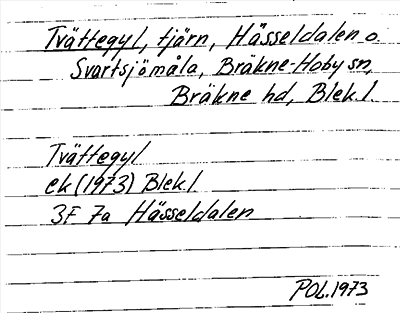 Tvättegyl, tjärn, Hässeldalen o.
Svartsjömåla, Bräkne-Hoby sn,
Bräkne hd, Blek.l.
Tvättegyl
ek (1973) Blek.l
3F 7a Hässeldalen
POL.1973